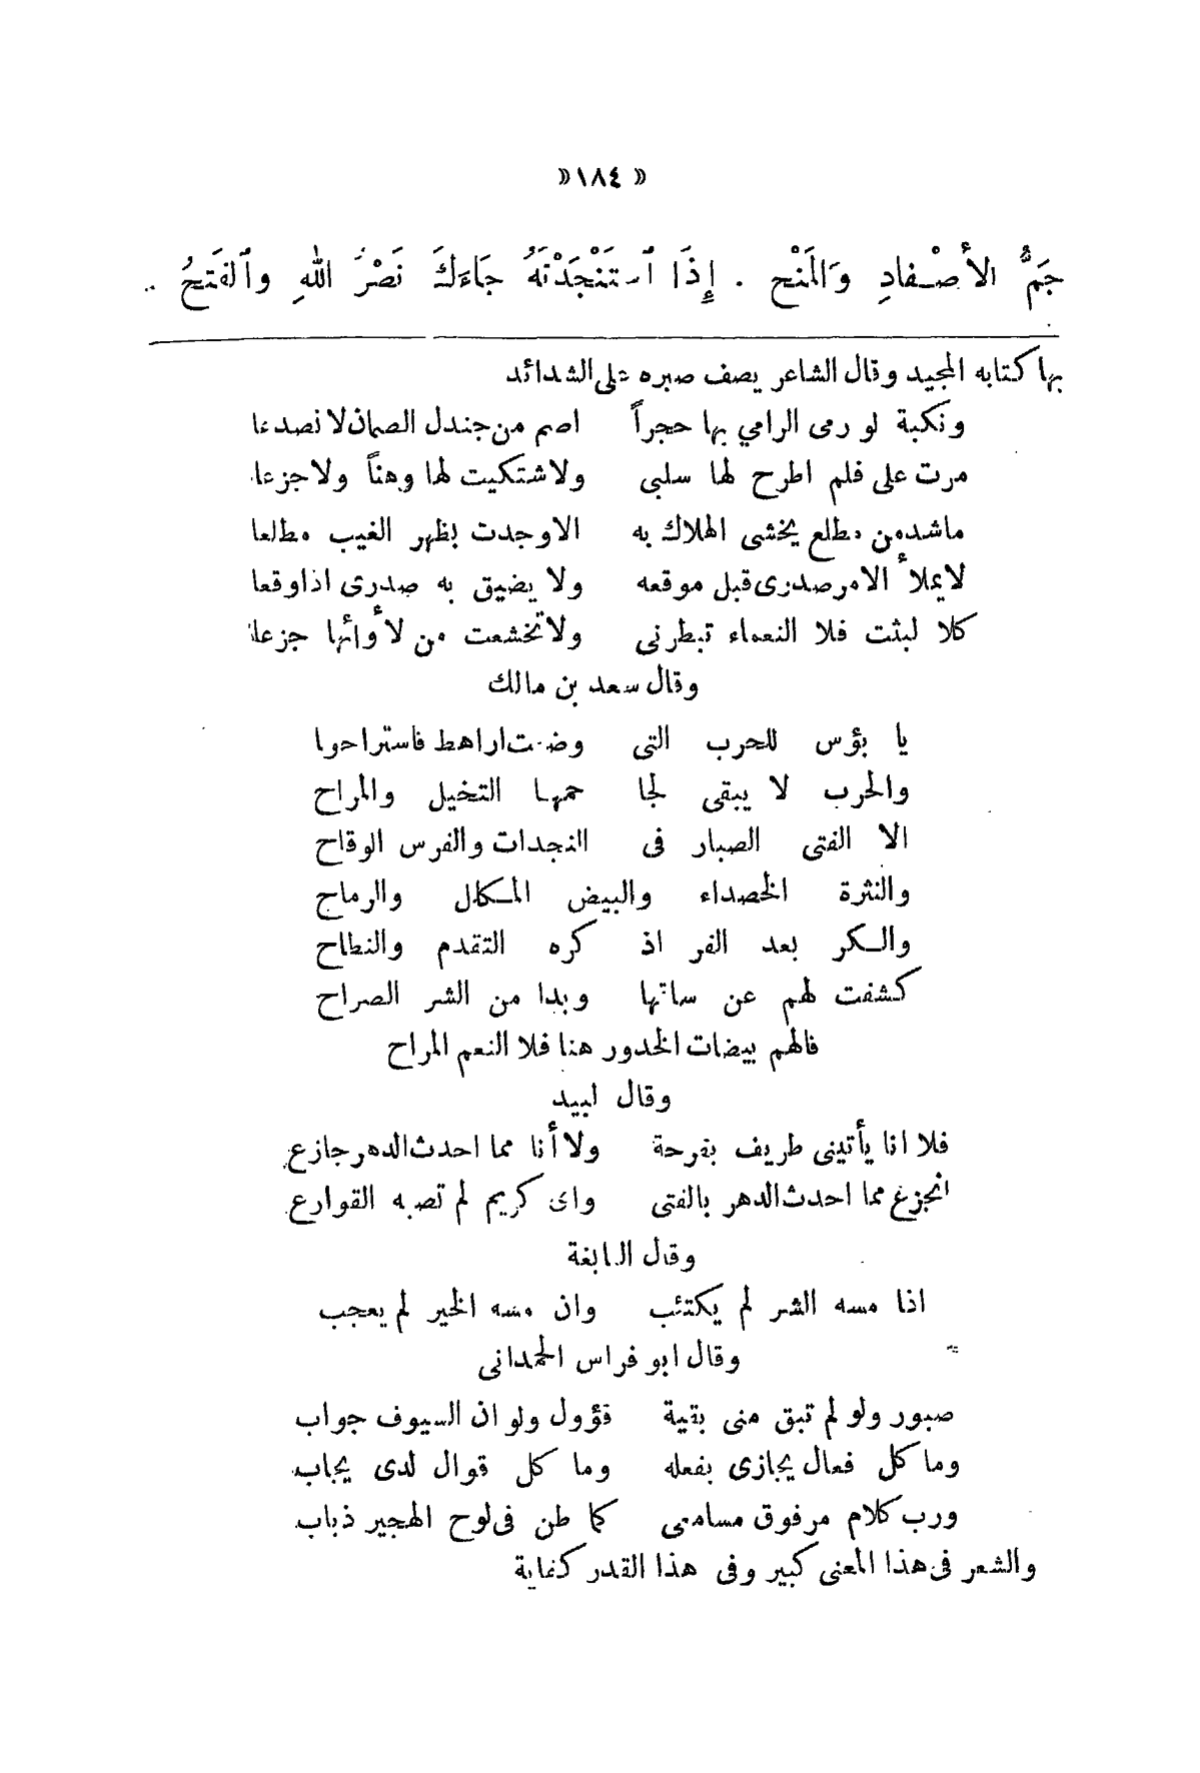 « ١٨٤ »
جَمُّ الأَصْفادِ وَالمَنْحِ . إِذَا ٱستَنْجَدْتَهُ جَاءَكَ نَصْرُ اللهِ وٱلفَتحُ ..
بها كتابه المجيد وقال الشاعر يصف صبره على الشدائد
ونكبة لو رمى الرامي بها حجراً اصم من جندل الصمان لا نصدعا
مرت على فلم اطرح لها سلبى ولا شتكيت لها وهناً ولا جزعا
ماشدمن مطلع يخشى الهلاك به الا وجدت بظهر الغيب مطلعا
لا يملأ الامر صدرى قبل موقعه ولا يضيق به صدرى اذا وقعا
كلا لبثت فلا النعماء تبطرنى ولا تخشعت من لأوائها جزعا
وقال سعد بن مالك
يا بؤس للحرب التى وضعت اراهط فاستراحوا
والحرب لا يبقى لجا حمها التخيل والمراح
الا الفتى الصبار فى النجدات والفرس الوقاح
والنثرة الخصداء والبيض المكال والرماح
والكر بعد الفر اذ كره التقدم والنطاح
كشفت لهم عن ساقها وبدا من الشر الصراح
فالهم بيضات الخدور هنا فلا النعم المراح
وقال لبيد
فلا انا يأتينى طريف بفرحة ولا أنا مما احدث الدهر جازع
اتجزع مما احدث الدهر بالفتى واى كريم لم تصبه القوارع
وقال النابغة
اذا مسه الشر لم يكتئب وان مسه الخير لم يعجب
وقال ابو فراس الحمدانى
صبور ولو لم تبق منى بقية قؤول ولو ان السيوف جواب
وما كل فعال يجازى بفعله وما كل قوال لدى يجاب
ورب كلام مرفوق مسامعى كما طن فى لوح الهجير ذباب
والشعر فى هذا المعنى كبير وفى هذا القدر كفاية